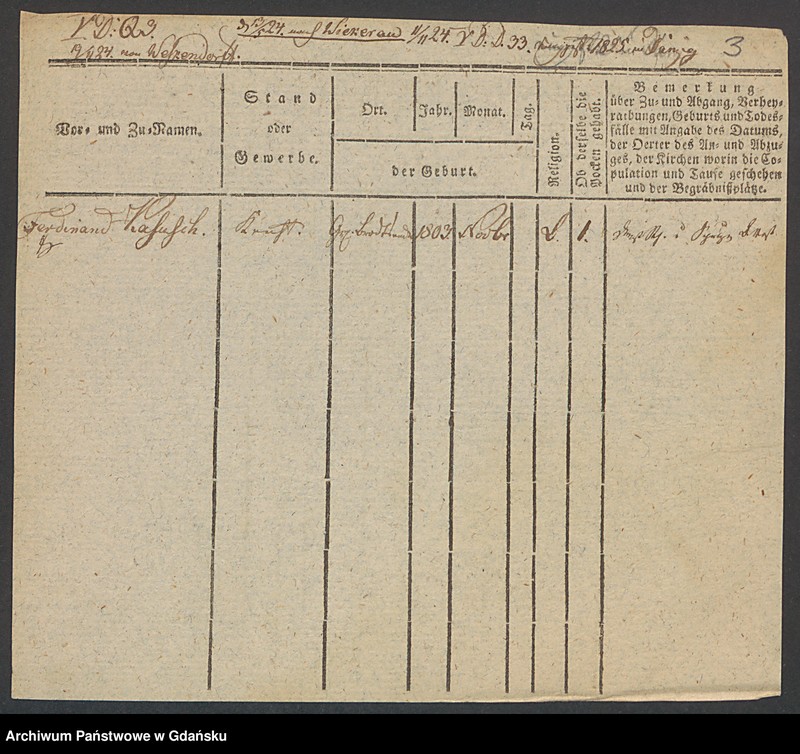 V D: Q 3.
nach Wickerau 11/11 24. V D: D. 33. 1825. in Danzig 3
24. von Weszendorff.
Vor- und Zu-Namen.
Stand
oder
Gewerbe.
Ort. Jahr. Monat. Tag.
der Geburt.
Religion.
Ob derselbe die
Pocken gehabt.
Bemerkung
über Zu- und Abgang, Verhey-
rathungen, Geburts und Todes-
fälle mit Angabe des Datums,
der Oerter des An- und Abzu-
ges, der Kirchen worin die Co-
pulation und Taufe geschehen
und der Begräbnißplätze.
Ferdinand Kasusch. Knecht. 1803 Novbr L. 1.
Archiwum Państwowe w Gdańsku